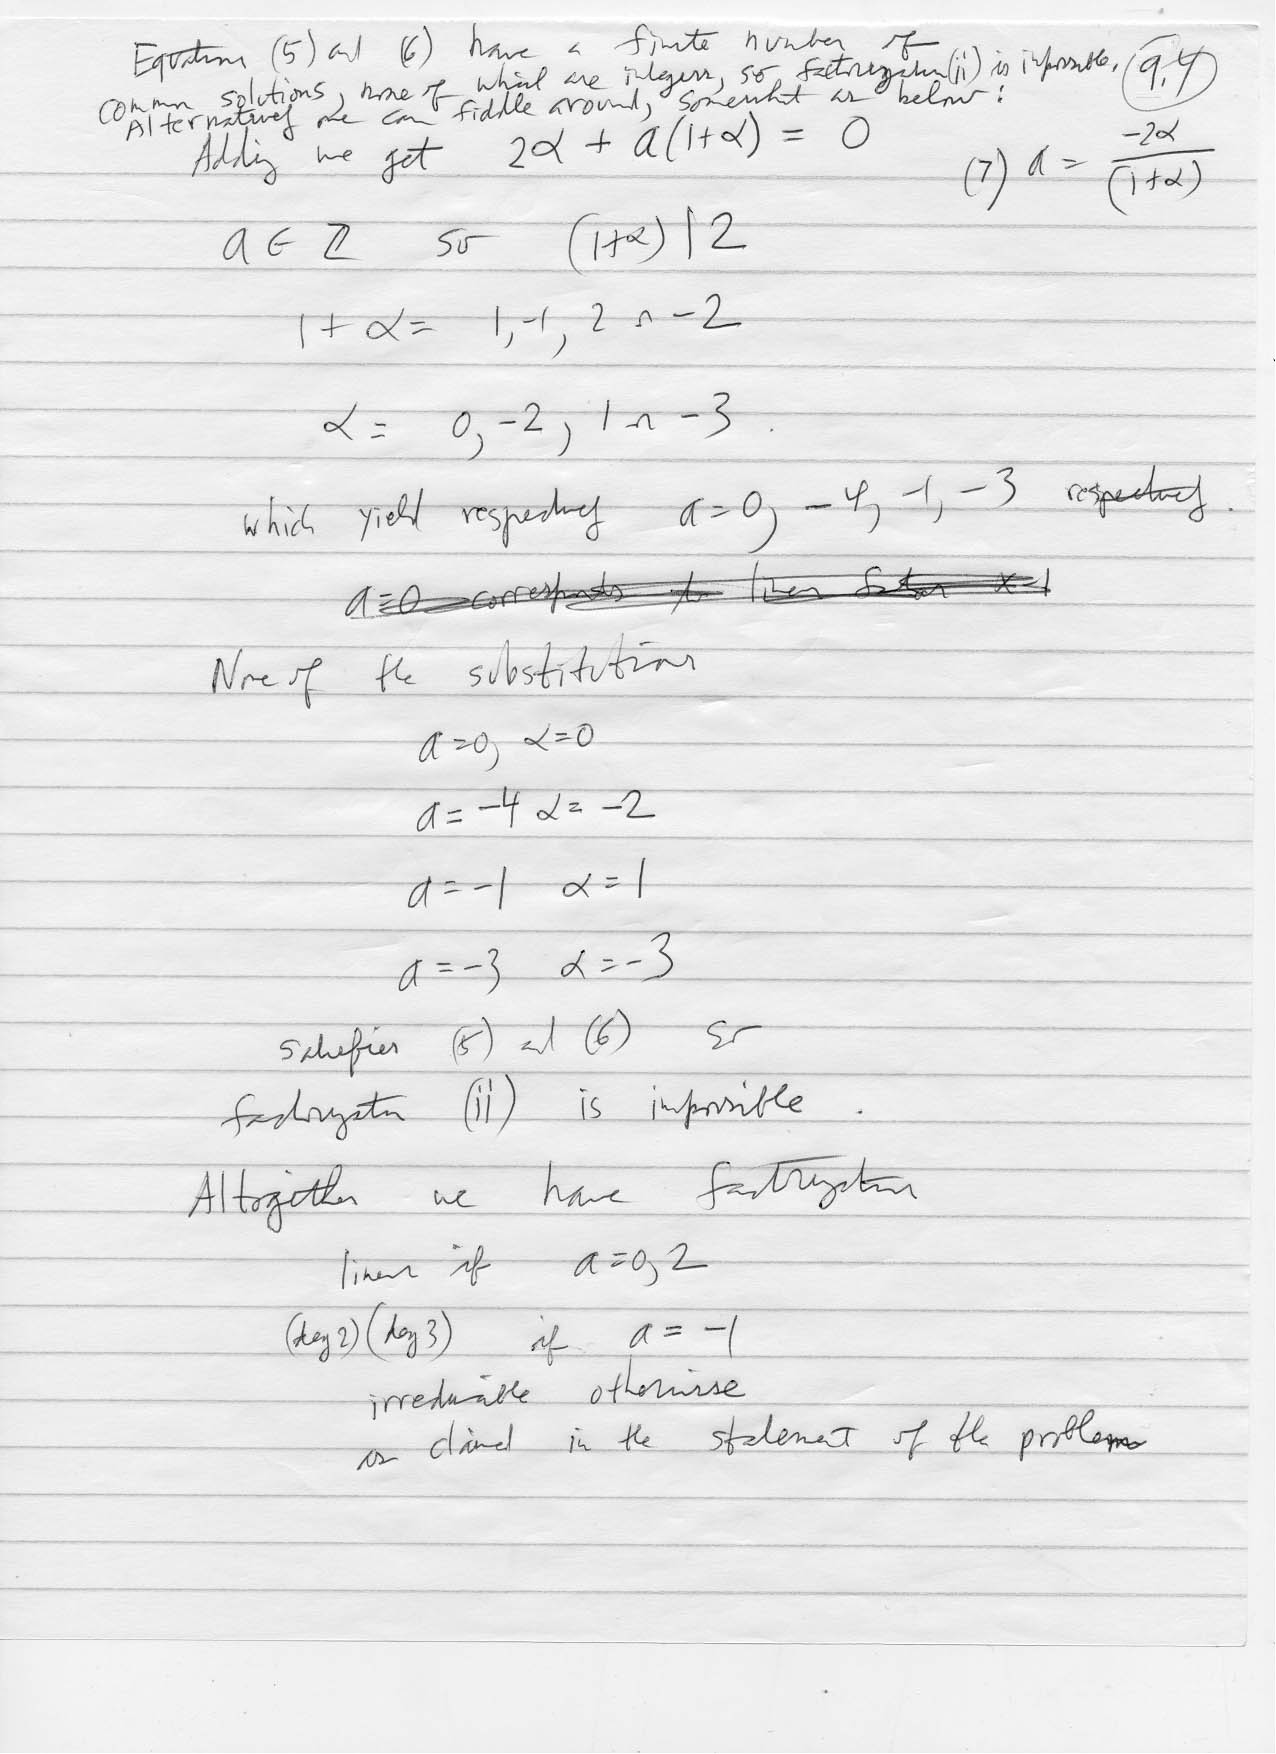 Equations (5) and (6) have a finite number of
common solutions, none of which are integers, so factorization (ii) is impossible. 9.4
Alternatively one can fiddle around, somewhat as below:
Adding we get 2α + a(1+α) = 0 (7) a = -2α/(1+α)
a ∈ ℤ so (1+α) | 2
1 + α = 1, -1, 2 or -2
α = 0, -2, 1 or -3.
which yield respectively a=0, -4, -1, -3 respectively.
a=0 corresponds to linear factor x-1
None of the substitutions
a=0, α=0
a=-4 α=-2
a=-1 α=1
a=-3 α=-3
satisfies (5) and (6) so
factorization (ii) is impossible.
Altogether we have factorization
linear if a=0, 2
(deg 2)(deg 3) if a=-1
irreducible otherwise
as claimed in the statement of the problem